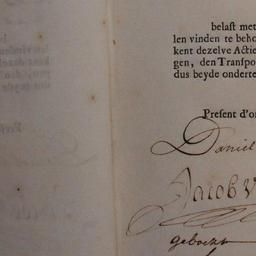 belast met
len vinden te beho
kent dezelve Actie
gen, den Transpo
dus beyde onderte
Present d'on
Daniel
Jacob V
geboekt